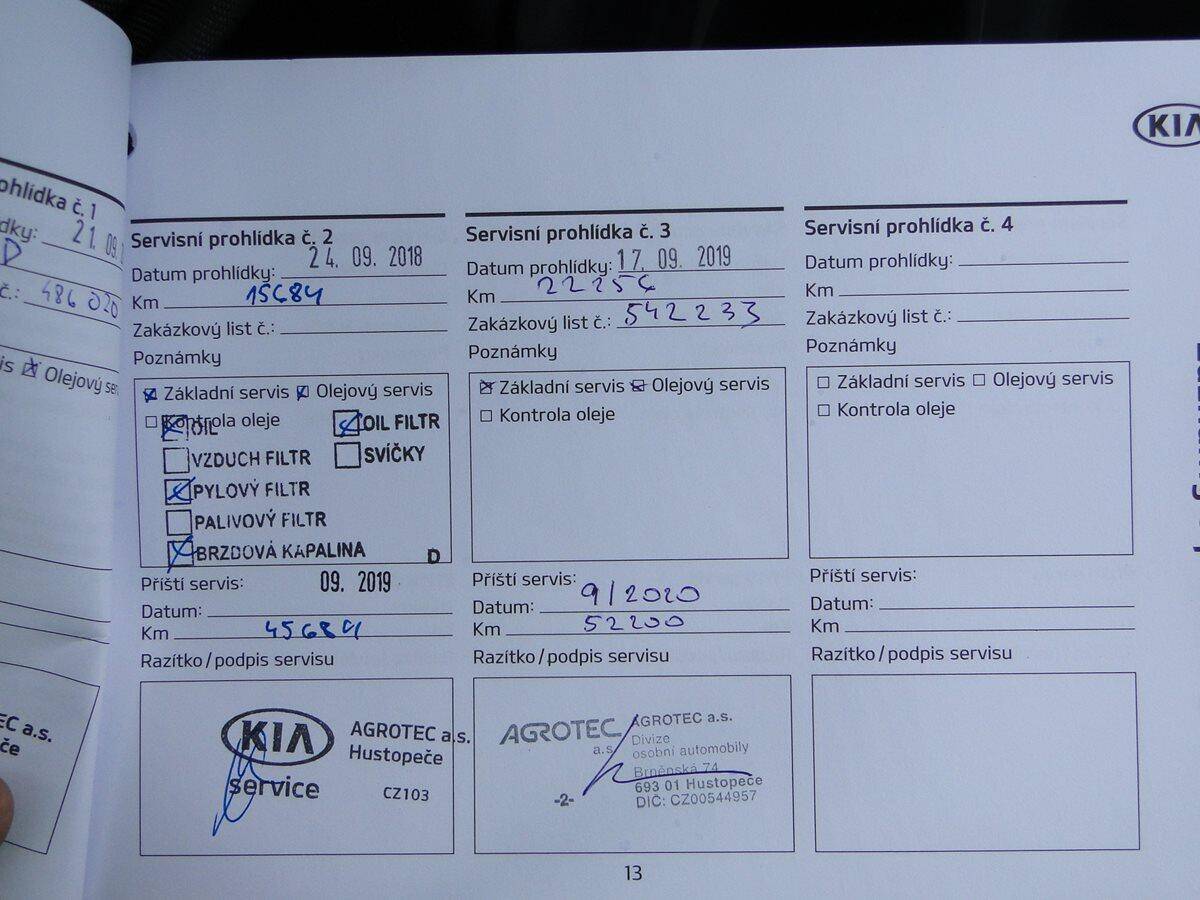 KIA
ohlídka č. 1
dky: 21. 09.
č.: 486 020
is Olejový se
EC a.s.
če
Servisní prohlídka č. 2
Datum prohlídky: 24. 09. 2018
Km 15684
Zakázkový list č.:
Poznámky
Základní servis Olejový servis
Kontrola oleje
OIL OIL FILTR
VZDUCH FILTR SVÍČKY
PYLOVÝ FILTR
PALIVOVÝ FILTR
BRZDOVÁ KAPALINA D
Příští servis: 09. 2019
Datum:
Km 45684
Razítko / podpis servisu
KIA AGROTEC a.s.
Hustopeče
service CZ103
Servisní prohlídka č. 3
Datum prohlídky: 17. 09. 2019
Km 22256
Zakázkový list č.: 542233
Poznámky
Základní servis Olejový servis
Kontrola oleje
Příští servis:
Datum: 9/2020
Km 52200
Razítko / podpis servisu
AGROTEC a.s.
AGROTEC a.s.
Divize
osobní automobily
Brněnská 74
693 01 Hustopeče
DIČ: CZ00544957
-2-
Servisní prohlídka č. 4
Datum prohlídky:
Km
Zakázkový list č.:
Poznámky
Základní servis Olejový servis
Kontrola oleje
Příští servis:
Datum:
Km
Razítko / podpis servisu
13